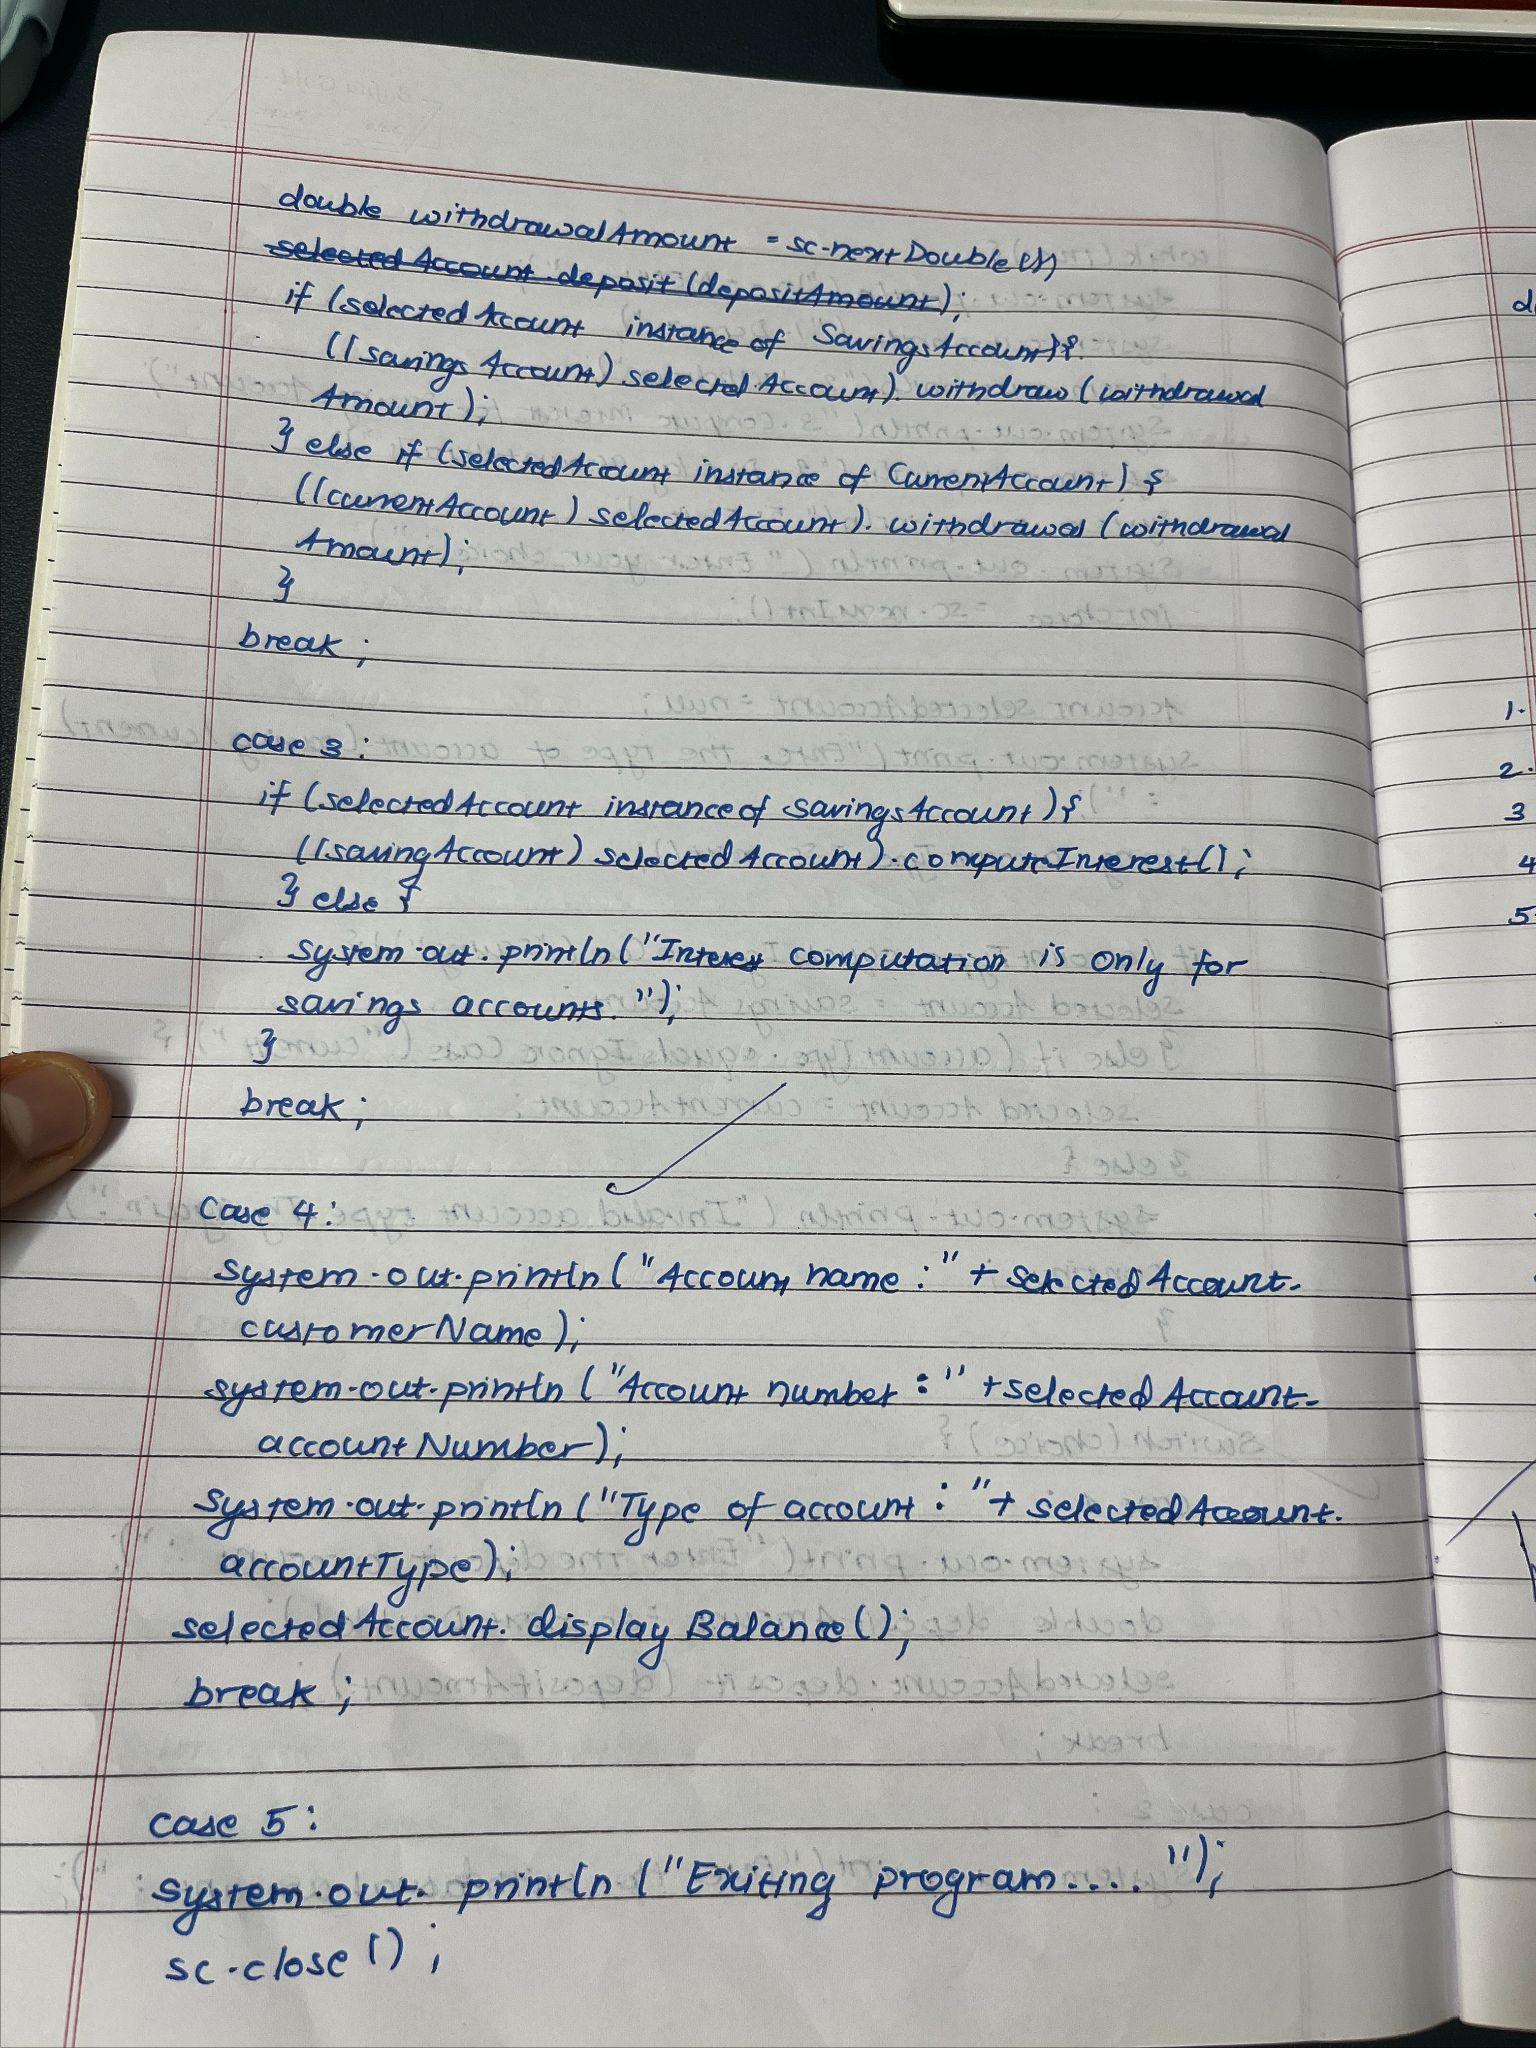 double withdrawalAmount = sc.nextDouble();
selected Account.deposit (depositAmount);
if (selectedAccount instance of SavingsAccount){
((savings Account) selected Account). withdraw (withdrawal
Amount);
} else if (selectedAccount instance of CurrentAccount) {
((currentAccount) selectedAccount). withdrawal (withdrawal
Amount);
}
break;
case 3:
if (selectedAccount instance of savingsAccount){
((savingAccount) selectedAccount).computeInterest();
} else {
system.out.println("Interest computation is only for
savings accounts.");
}
break;
case 4:
system.out.println("Account name:" + selectedAccount.
customerName);
system.out.println("Account number:" + selectedAccount.
accountNumber);
system.out.println("Type of account:" + selectedAccount.
accountType);
selectedAccount.displayBalance();
break;
case 5:
system.out.println("Exiting program....");
sc.close();
1.
2.
3
4
5.